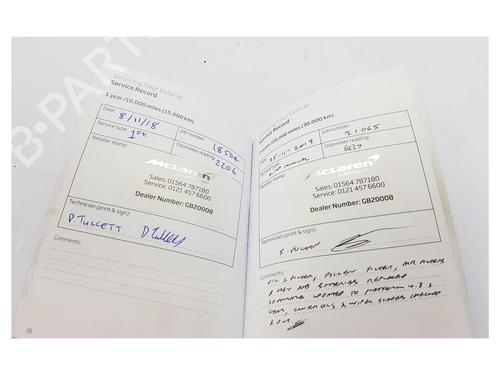 Servicing Your Vehicle
Service Record
1 year /10,000 miles (15,000 km)
Date: 8/11/18
Job number: 18504
Service type: 1st
Odometer reading: 2206
Retailer stamp:
McLaren
Sales: 01564 787180
Service: 0121 457 6600
Dealer Number: GB20008
Technician (print & sign):
D. TULLETT
Comments:
38
Vehicle
Service Record
(30,000 km)
25-11-2019
Job number: 21065
Odometer reading:
stamp:
McLaren
Sales: 01564 787180
Service: 0121 457 6600
Dealer Number: GB20008
Technician (print & sign):
Comments:
OIL & FILTER, POLLEN FILTER, AIR FILTERS
& KEY FOB BATTERIES REPLACED
SOFTWARE UPDATED TO PLATFORM
& WIPER BLADES CHECKED
B-PARTS